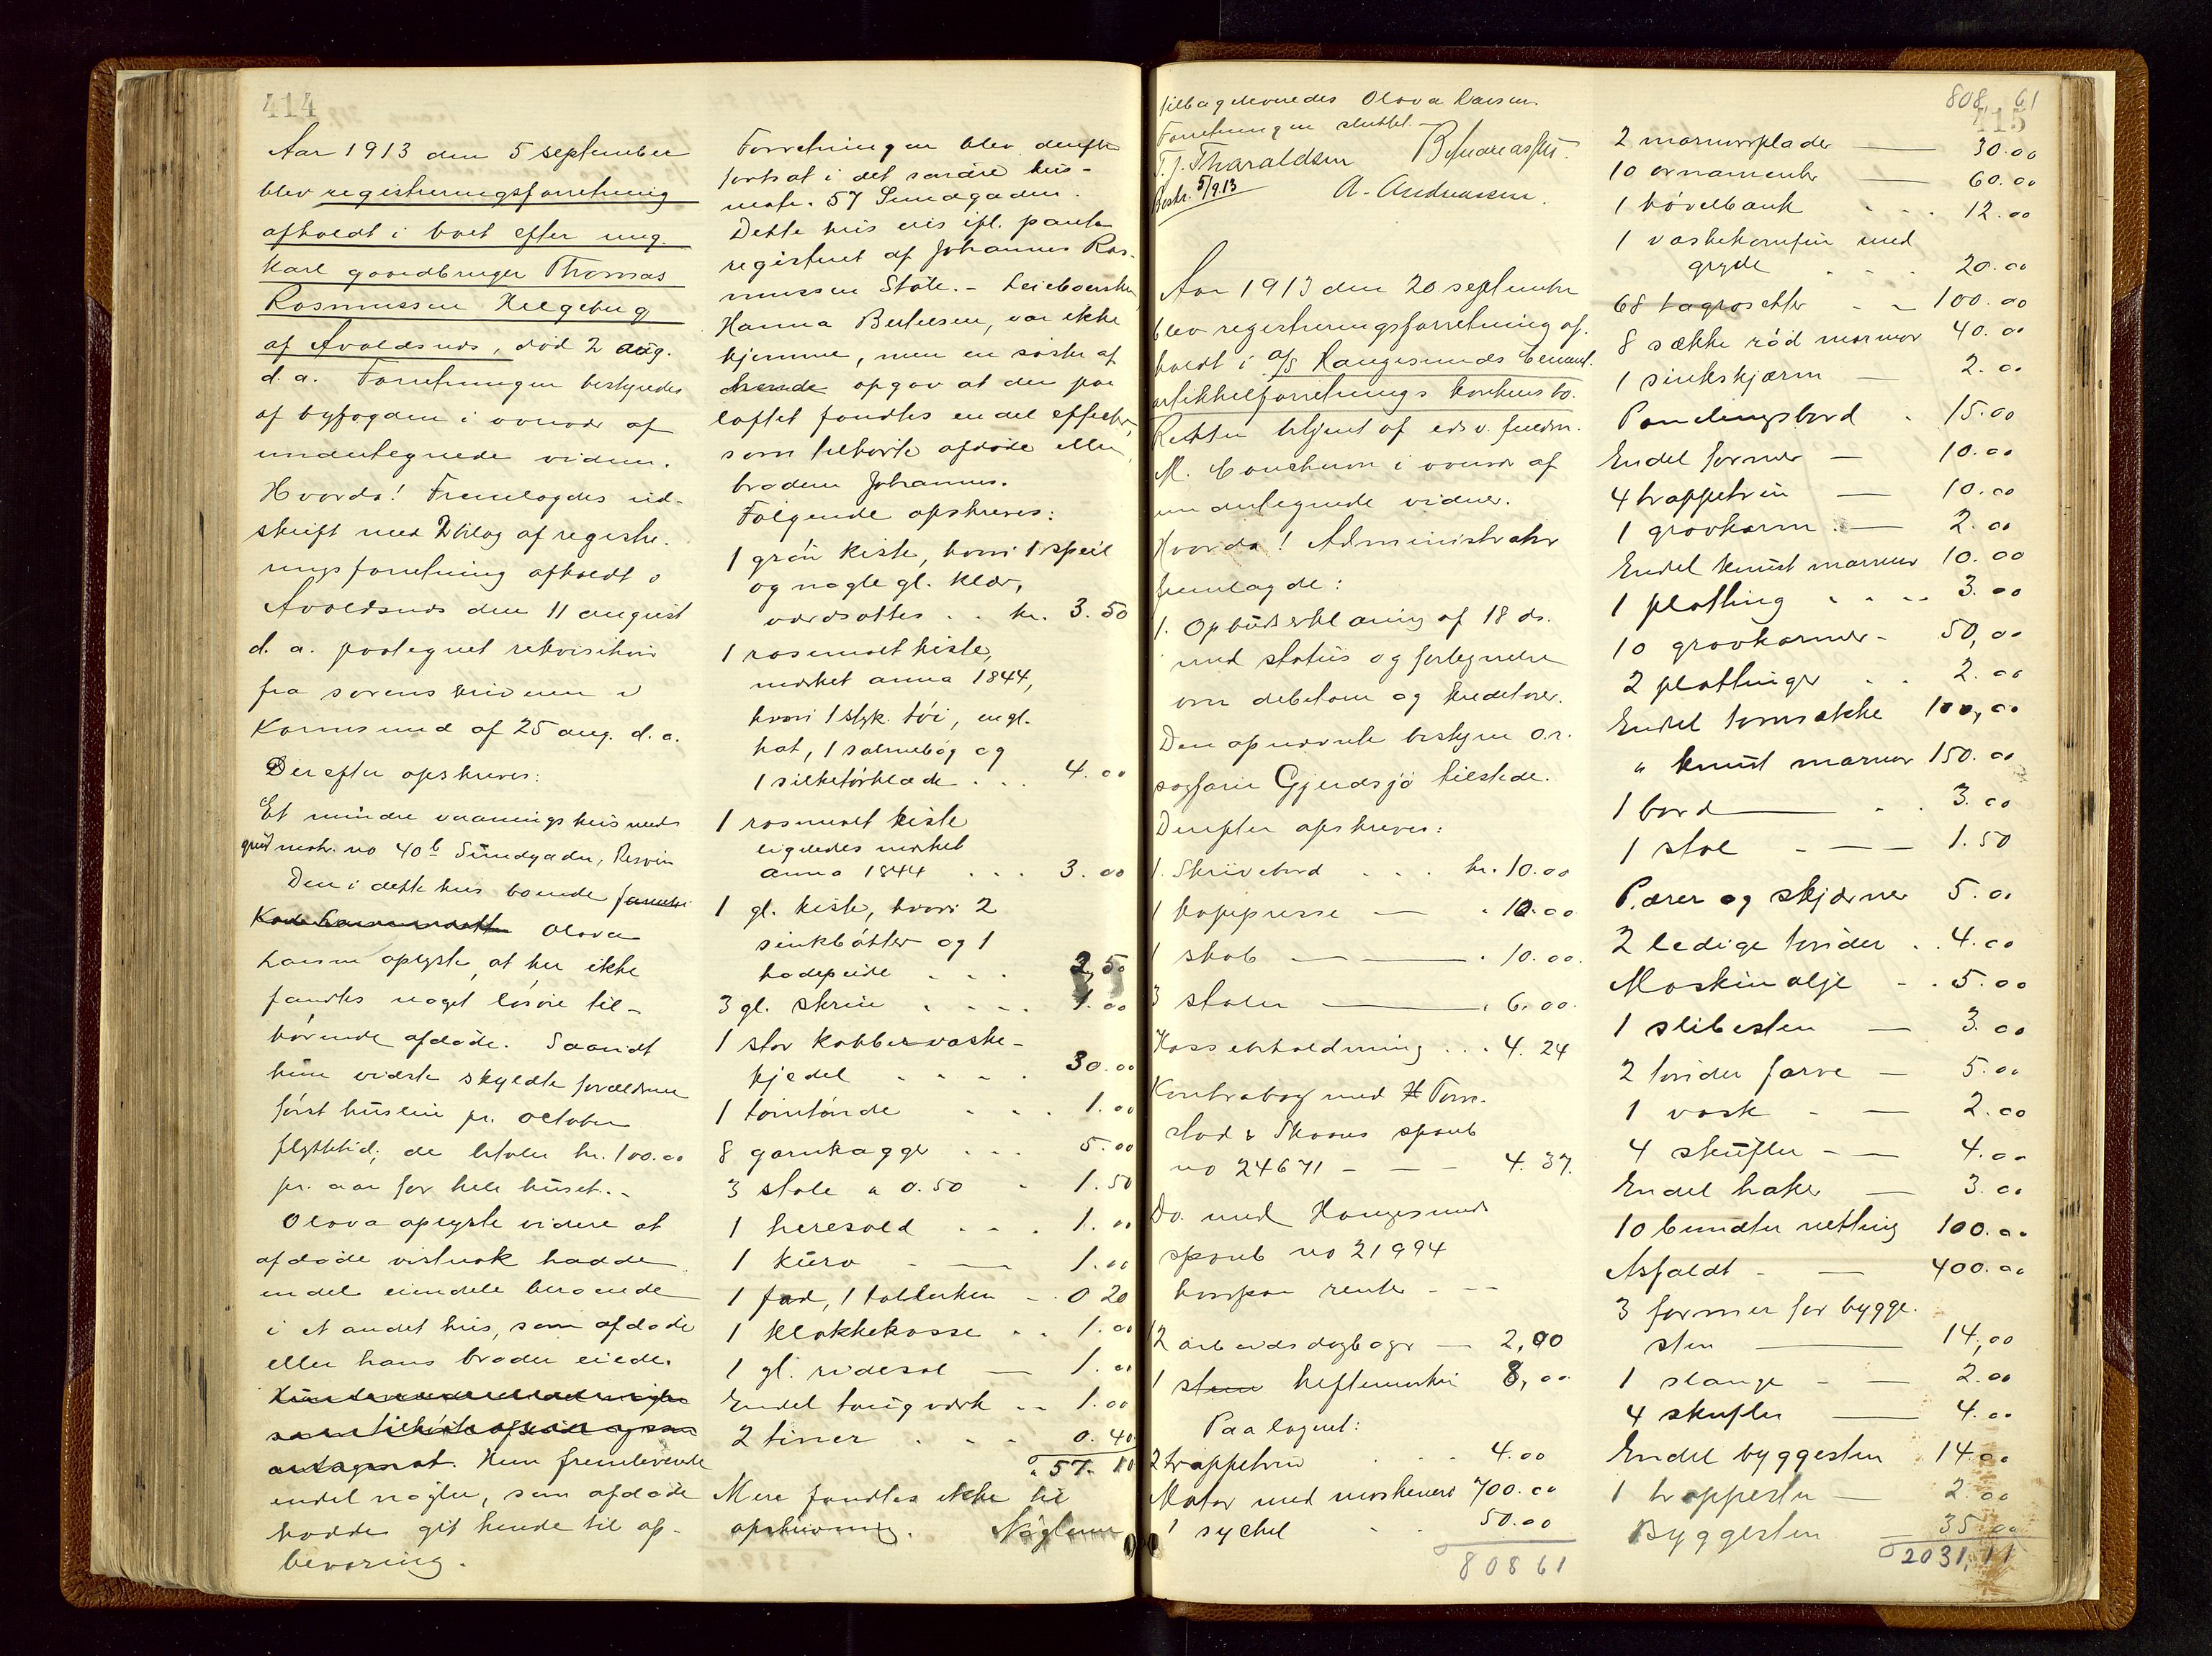 414
Aar 1913 den 5 september
blev registreringsforretning
afholdt i boet efter ung-
karl gaardbruger Thomas
Rasmussen Helgebug
af Avaldsnes, død 2 aug.
d. a. Forretningen bestyredes
af byfogden i overvær af
undertegnede vidner.
Hvorda! Fremlagdes ud-
skrift med 2 bilag af registre-
ringsforretning afholdt i
Avaldsnes den 11 august
d. a. paategnet rekvisition
fra sorenskriveren i
Karmsund af 25 aug. d. a.
Derefter opskreves:
Et mindre vaaningshus med
grund matr. no 40b Sundgaden, Risøen
Den i dette hus boende
Olava
Larsen oplyste, at her ikke
fandtes noget løsøre til-
hørende afdøde. Saavidt
hun vidste skyldte forældrene
først husleie pr. october
flyttetid; de betaler kr. 100.00
pr. aar for hele huset.-
Olava oplyste videre at
afdøde vistnok hadde
endel eiendele beroende
i et andet hus, som afdøde
eller hans broder eiede.
Hun fremleverte
endel nøgler, som afdøde
hadde git hende til op-
bevaring.
Forretningen blev derefter
fortsat i det søndre hus-
matr. 57 Sundgaden.
Dette hus eies ifl. pante
registeret af Johannes Ras-
mussen Støle. - Leieboersken,
Hanna Bertelsen, var ikke
hjemme, men en søster af
hende opgav at der paa
loftet fandtes endel effecter,
som tilhørte afdøde eller
broderen Johannes.
Følgende opskreves:
1 grøn kiste, hvori 1 speil
og nogle gl. klær,
værdsattes . . kr. 3.50
1 rosemalt kiste,
merket anna 1844,
hvori 1 styk. tøi, en gl.
hat, 1 salmebog og
1 silketørklæde . . . 4.00
1 rosemalt kiste
ligeledes merket
anna 1844 . . . 3.00
1 gl. kiste, hvori 2
sinkbøtter og 1
hodepude . . . 2,50
3 gl. skrin . . . . 1.00
1 stor kobbervaske-
kjedel . . . . 30.00
1 tomtønde . . . 1.00
8 garnkagger . . . 5.00
3 stole a 0.50 - 1.50
1 heresold . . . 1.00
1 kurv - — 1.00
1 fad, 1 tallerken - . 0 20
1 klokkekasse . . 1.00
1 gl. ridesal — 1.00
Endel taugværk - - 1.00
2 tiner . . . 0.40
57. 10
Mere fandtes ikke til
opskrivning. Nøglerne
tilbageleveredes Olava Larsen.
Forretningen sluttet.-
T. J. Tharaldsen B. Andreassen
Beskr. 5/9.13 A. Andreassen.
Aar 1913 den 20 september
blev registreringsforretning af-
holdt i a/s Haugesunds Cement-
artikkelforretnings konkursbo.
Retten betjent af edsv. fuldm.
M. Coucheron i overvær af
undertegnede vidner.
Hvorda! Administrator
fremlagde:
1. Opbudserklæring af 18 ds.
med status og fortegnelse
om debitorer og kreditorer.
Den opnævnte bestyrer o.r.
sagfører Gjerdsjø tilstede.
Derefter opskreves:
1. Skrivebord . . . kr. 10.00
1 kopipresse — . 10.00
1 skab — . 10.00.
3 stoler — . 6.00.
Kassebeholdning . . . 4. 24
Kontrabog med Torre-
stad & Skaares spareb
no 24671 - - - 4. 37.
Do. med Haugesunds
spareb no 21994
hvorpaa renter - - -
12 arbeidsdagbøger — 2,00
1 heftemaskin 8,00
Paa lageret:
2 trappetrin . . 4.00
Motor med maskineri 700.00
1 sychel . . 50.00
80861
808 61
415
2 marmorplader — 30.00
10 ornamenter — 60.00
1 høvelbank . . . 12.00
1 vaskekomfur med
gryde . . . 20.00
68 tagrosetter - - 100.00
8 sække rød marmor 40.00
1 sinkskjærm — 2.00
Pandingsbord . 15.00
Endel former — 10.00
4 trappetrin — 10.00
1 gravkarm . — 2.00
Endel kunst marmor 10.00
1 platting . . - - 3.00
10 gravkarmer- 50,00
2 plattinger . . 2.00
Endel tomsække 100,00
" kunst marmor 150.00
1 bord — . . 3.00
1 stol - — — 1.50
Pærer og skjærmer 5.00
2 ledige tønder . . 4.00
Maskinolje - . 5.00
1 slibesten — 3.00
2 tønder farve — 5.00
1 vask - — 2.00
4 skufler - — 4.00
Endel haker — 3.00
10 bundter netting 100.00
Asfaldt - — 400.00
3 former for bygge-
sten — 14,00
1 slange - — 2.00
4 skufler — 4.00
Endel byggesten - 14.00
1 trappesten — 2.00
Byggesten — 35.00
2031,11